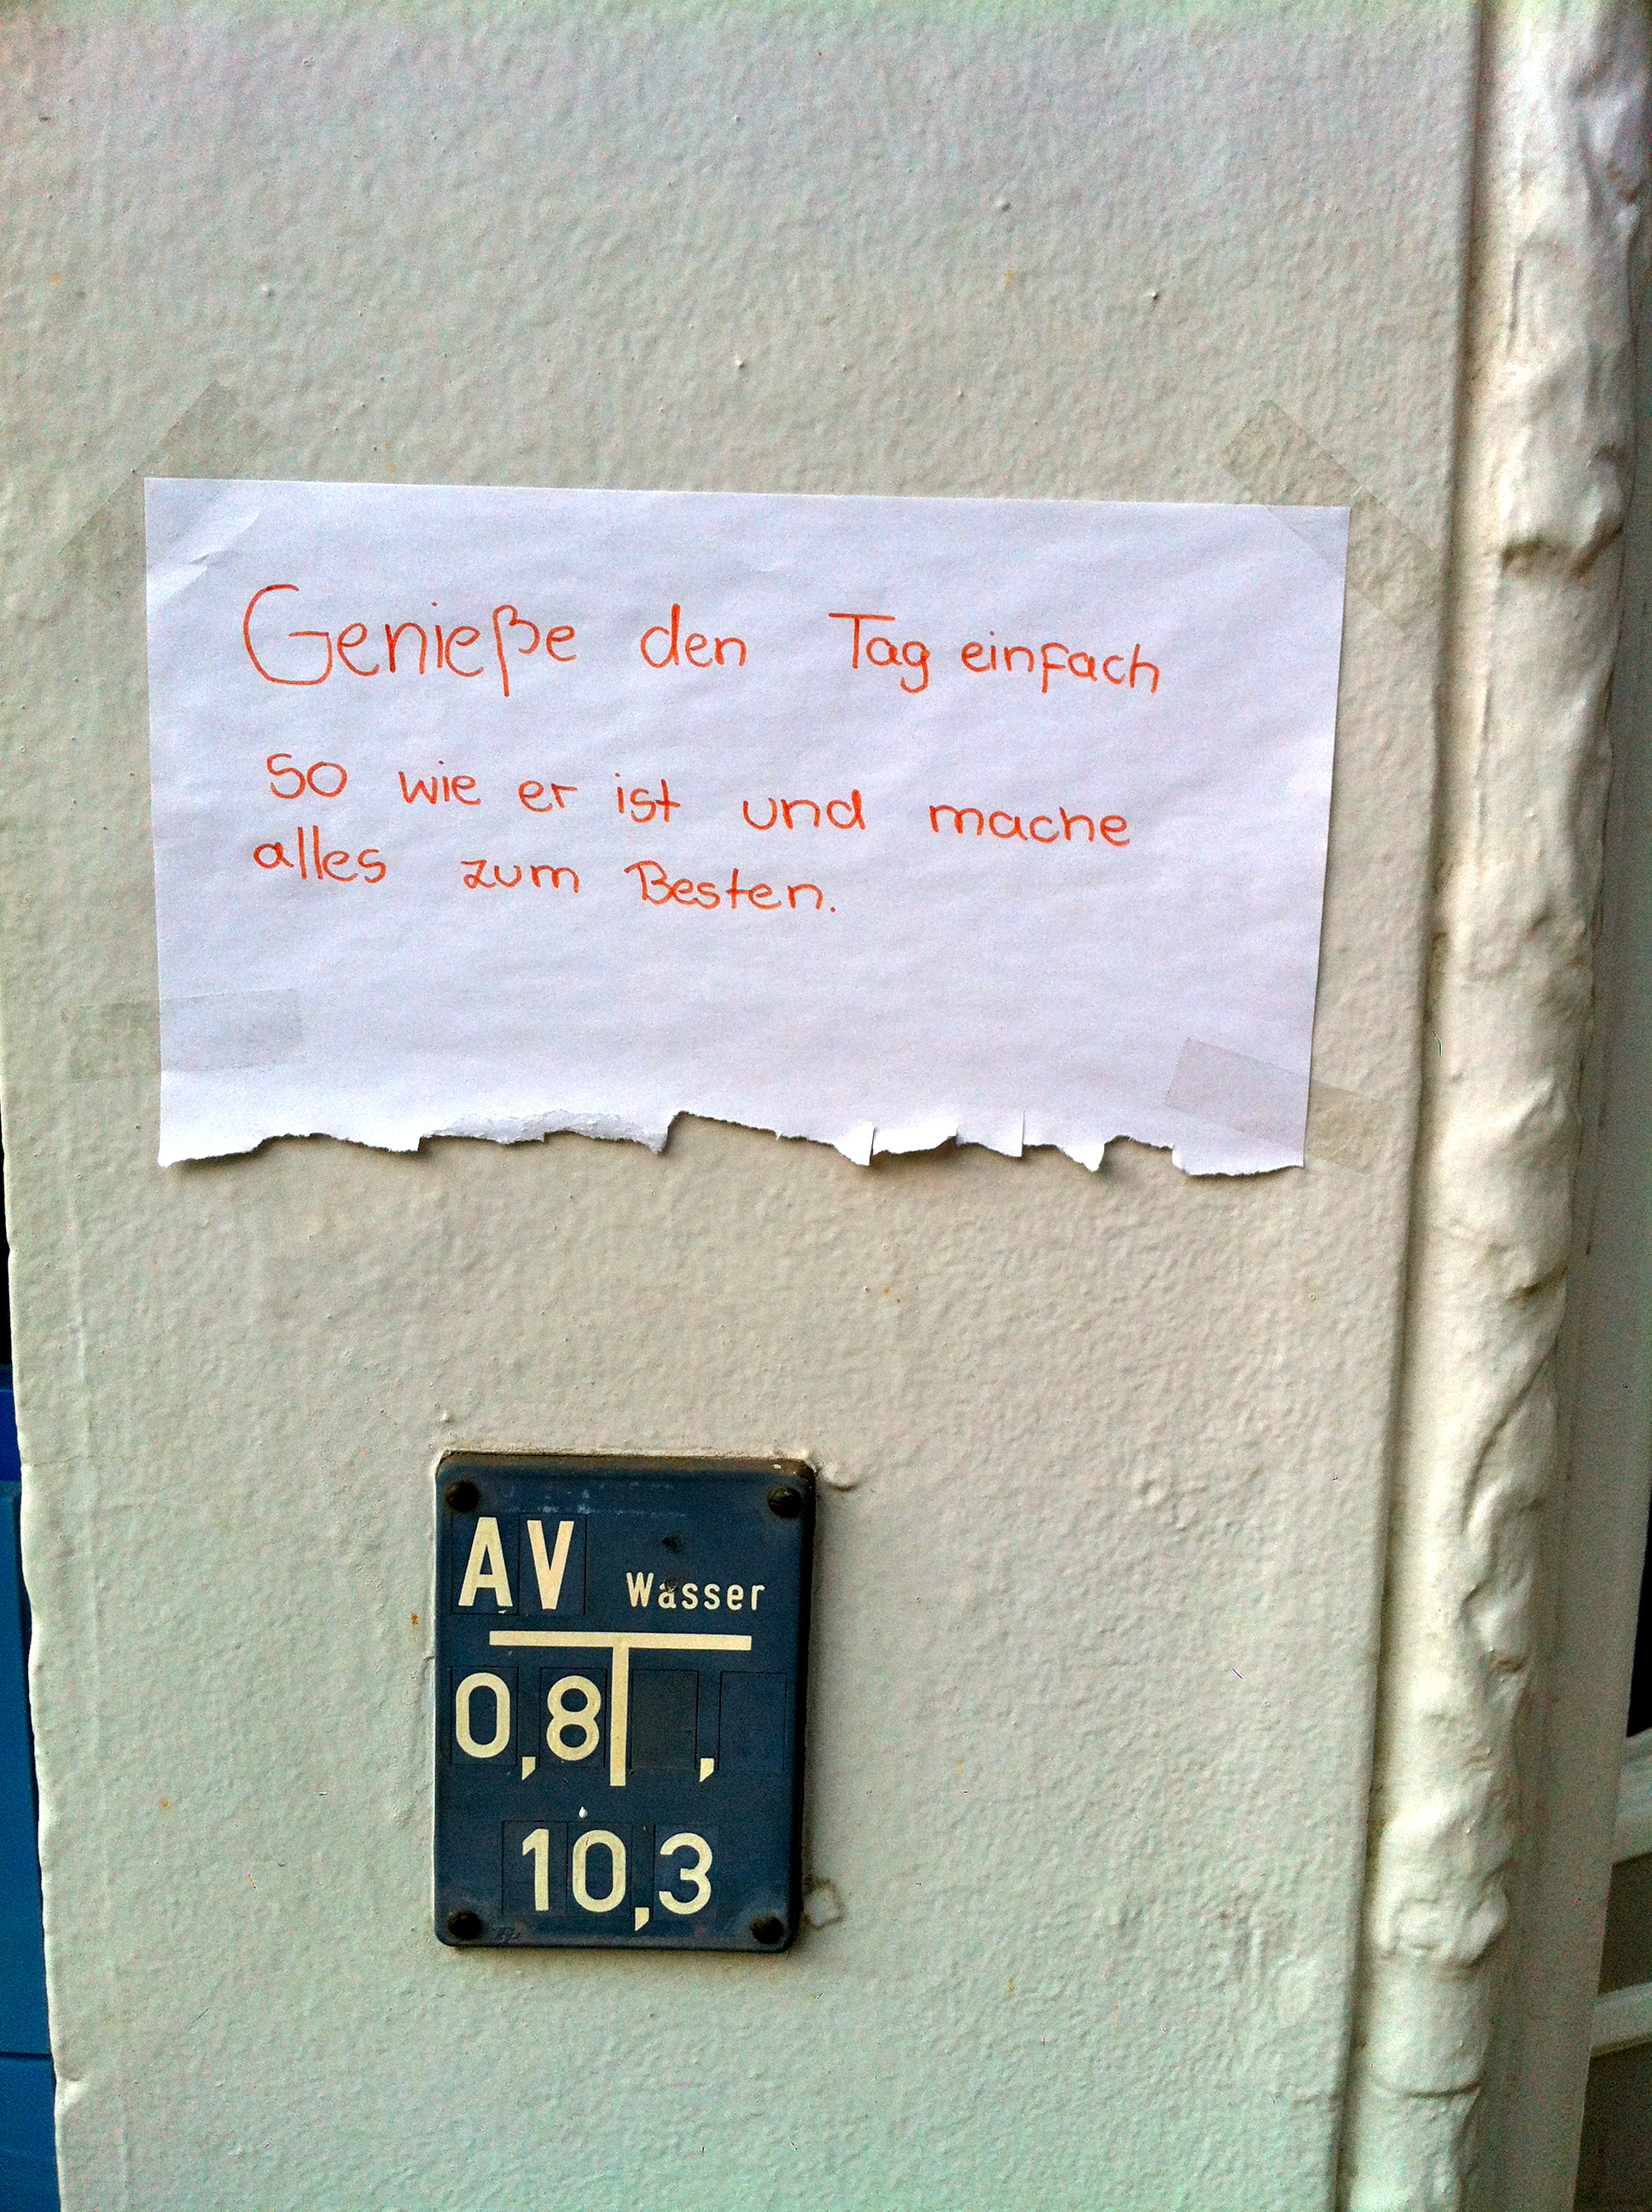 Genieße den Tag einfach
so wie er ist und mache
alles zum Besten.
AV Wasser
0,8 ,
10,3